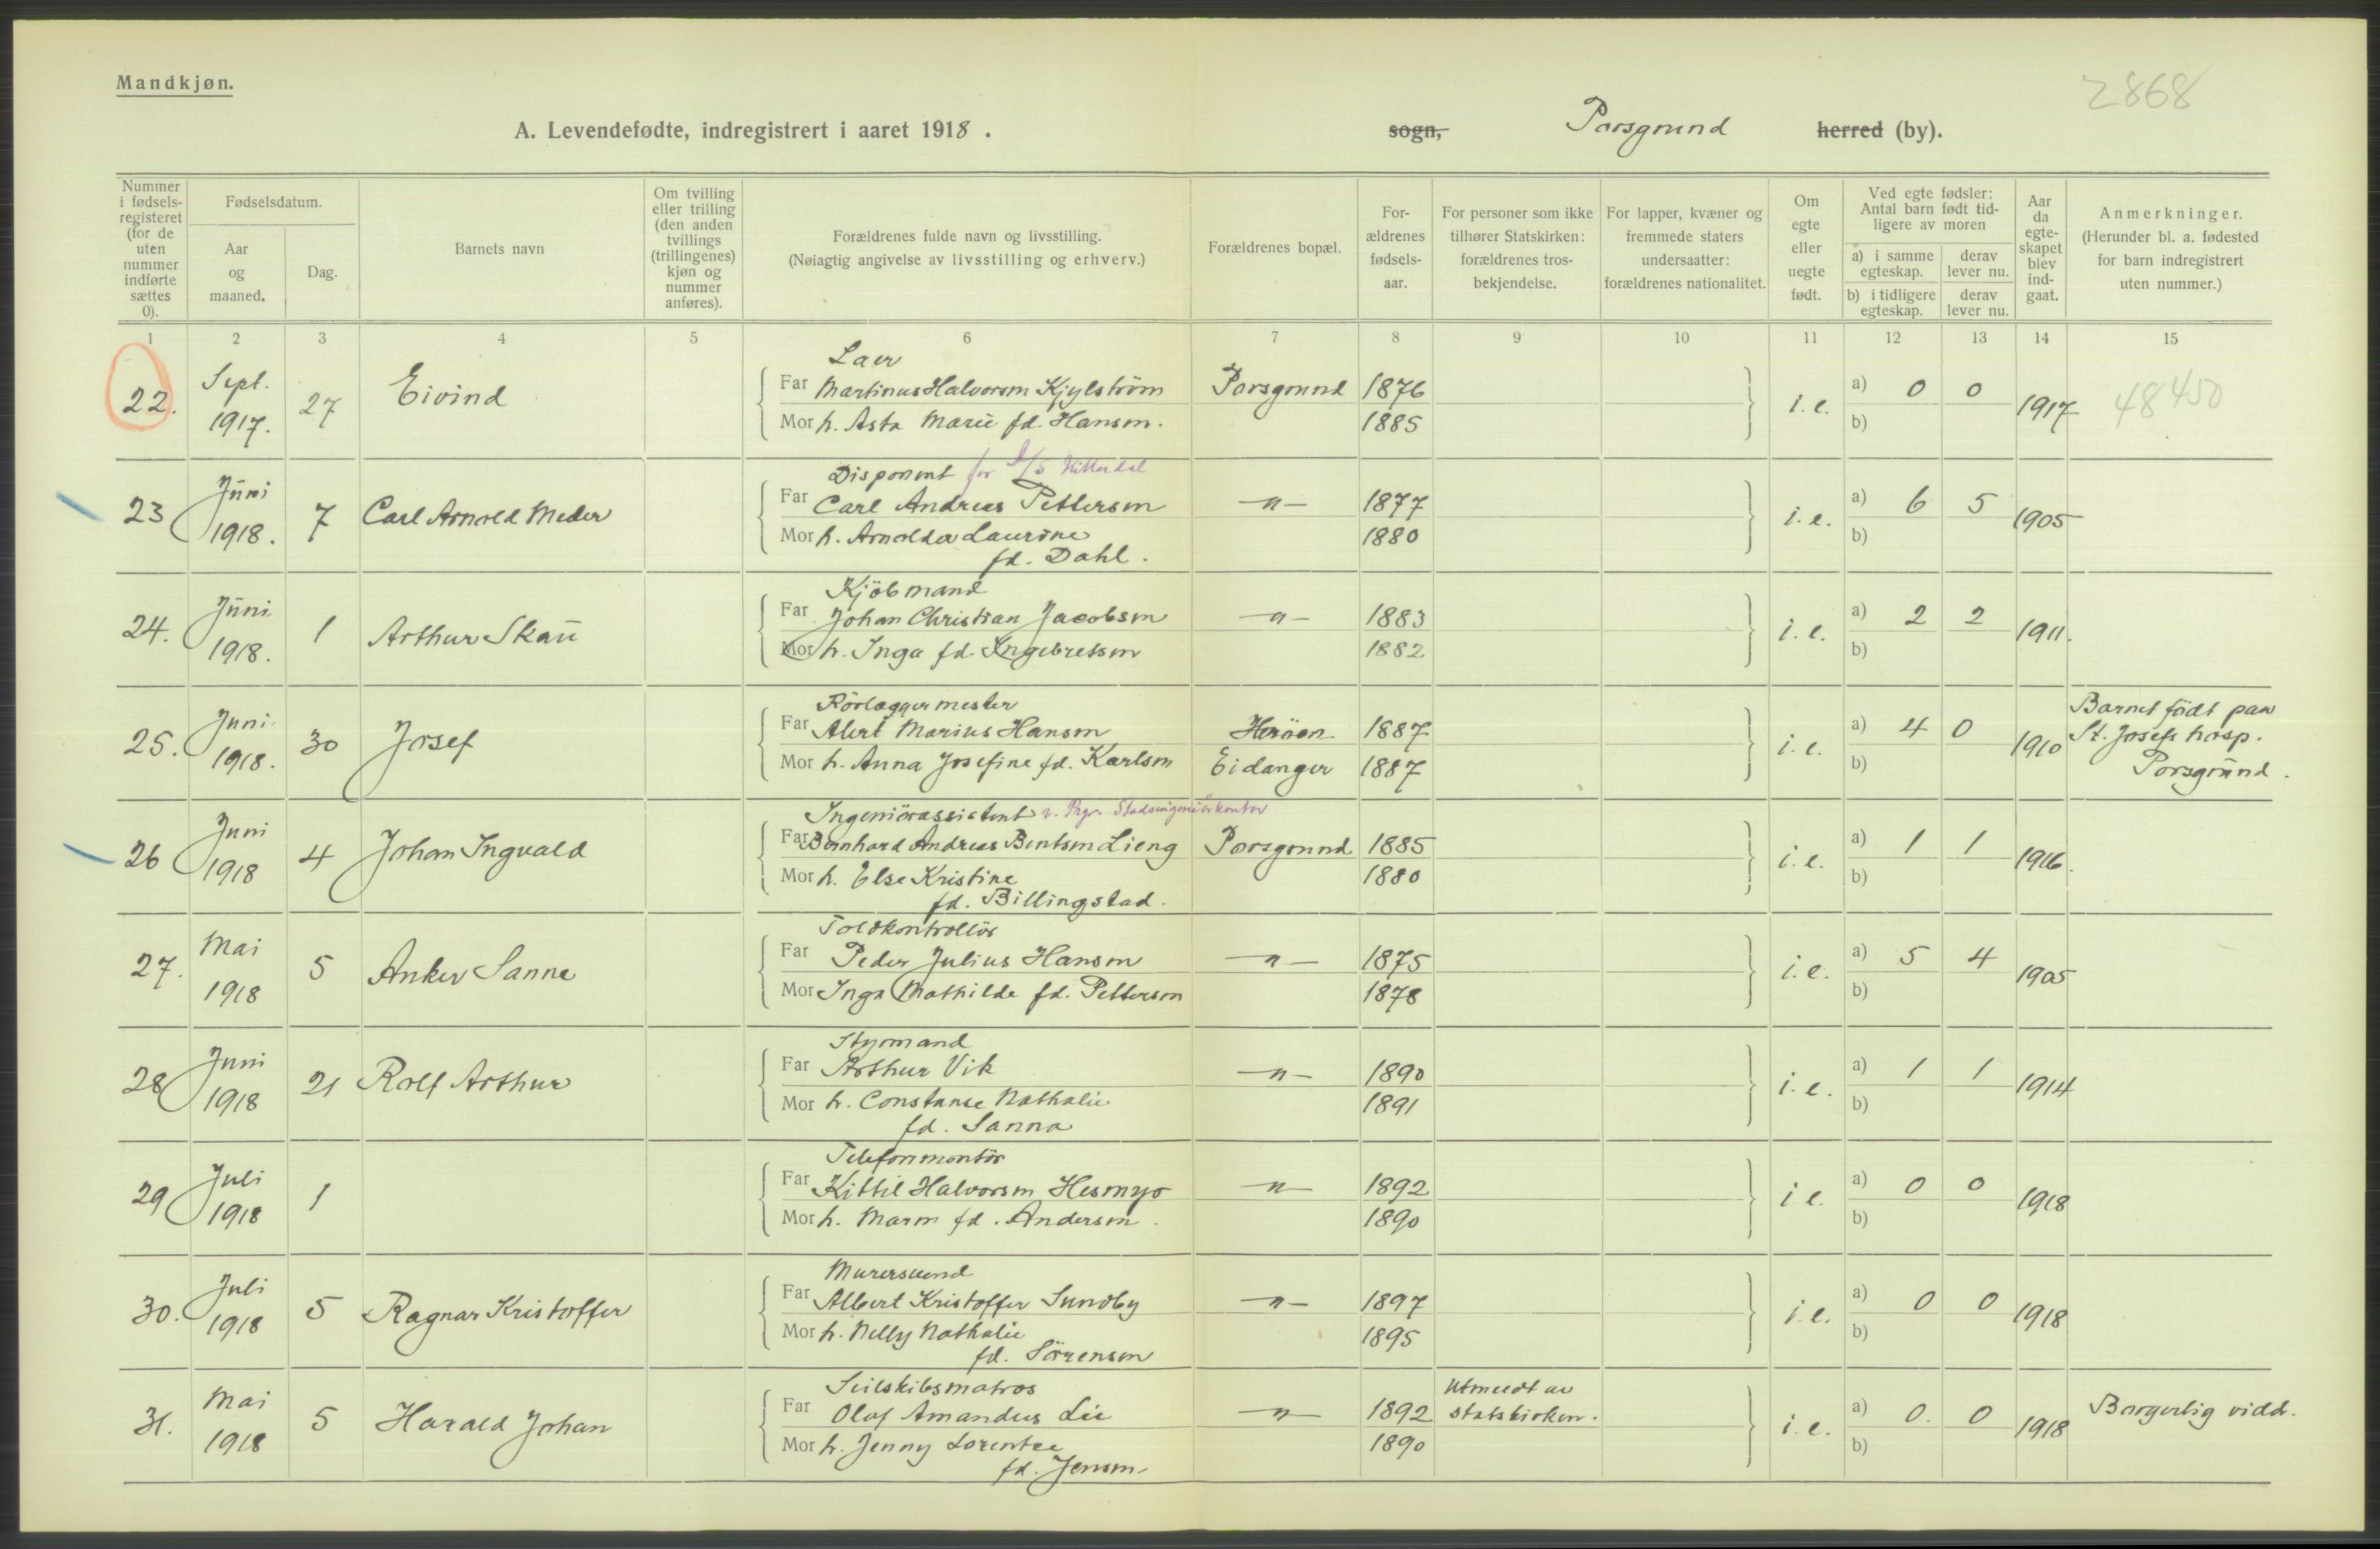 Mandkjøn.
2868
A. Levendefødte, indregistrert i aaret 1918 .
sogn, Porsgrund herred (by).
Nummer i fødselsregisteret (for de uten nummer indførte sættes 0).
Fødselsdatum.
Aar og maaned.
Dag.
Barnets navn
Om tvilling eller trilling (den anden tvillings (trillingenes) kjøn og nummer anføres).
Forældrenes fulde navn og livsstilling.
(Nøiagtig angivelse av livsstilling og erhverv.)
Forældrenes bopæl.
Forældrenes fødselsaar.
For personer som ikke tilhører Statskirken: forældrenes trosbekjendelse.
For lapper, kvæner og fremmede staters undersaatter: forældrenes nationalitet.
Om egte eller uegte født.
Ved egte fødsler: Antal barn født tidligere av moren
a) i samme egteskap. derav lever nu.
b) i tidligere egteskap. derav lever nu.
Aar da egteskapet blev indgaat.
Anmerkninger.
(Herunder bl. a. fødested for barn indregistrert uten nummer.)
1 2 3 4 5 6 7 8 9 10 11 12 13 14 15
22. Sept. 1917. 27 Eivind
Far Martinus Halvorsen Kjylstrøm Porsgrund 1876
Mor h. Asta Marie fd. Hansen. 1885
i. e. a) 0 0 b) 1917 48450
23 Juni 1918. 7 Carl Arnold Meder
Disponent for D/S Hitterdal
Far Carl Andreas Pettersen —"— 1877
Mor h. Arnolda Laurine fd. Dahl. 1880
i. e. a) 6 5 b) 1905
24. Juni 1918. 1 Arthur Skau
Kjöbmand
Far Johan Christian Jacobsen —"— 1883
Mor h. Inga fd. Ingebretsen 1882
i. e. a) 2 2 b) 1911.
25. Juni 1918. 30 Josef
Rörlæggermester
Far Alert Marius Hansen Heröen 1887
Mor h. Anna Josefine fd. Karlsen Eidanger 1887
i. e. a) 4 0 b) 1910
Barnet födt paa St. Josefs hosp. Porsgrund.
26 Juni 1918 4 Johan Ingvald
Ingeniörassistent v. Pgr. Stadsingeniörkontor
Far Bernhard Andreas Bentsen Lieng Porsgrund 1885
Mor h. Else Kristine fd. Billingstad. 1880
i. e. a) 1 1 b) 1916.
27. Mai 1918 5 Anker Sanne
Toldkontrollör
Far Peder Julius Hansen —"— 1875
Mor Inga Mathilde fd. Pettersen 1878
i. e. a) 5 4 b) 1905
28 Juni 1918 21 Rolf Arthur
Styrmand
Far Arthur Vik —"— 1890
Mor h. Constanse Nathalie fd. Sanna 1891
i. e. a) 1 1 b) 1914
29 Juli 1918 1
Telefonmontör
Far Kittil Halvorsen Hesmyo —"— 1892
Mor h. Maren fd. Andersen. 1890
i e. a) 0 0 b) 1918
30. Juli 1918 5 Ragnar Kristoffer
Murersvend
Far Albert Kristoffer Sundby —"— 1897
Mor h. Nelly Nathalie fd. Sörensen 1895
i. e. a) 0 0 b) 1918
31. Mai 1918 5 Harald Johan
Seilskibsmatros
Far Olaf Amandus Lie —"— 1892 Utmeldt av statskirken.
Mor h. Jenny Lorentze fd. Jensen 1890
i. e. a) 0. 0 b) 1918 Borgerlig viedd.